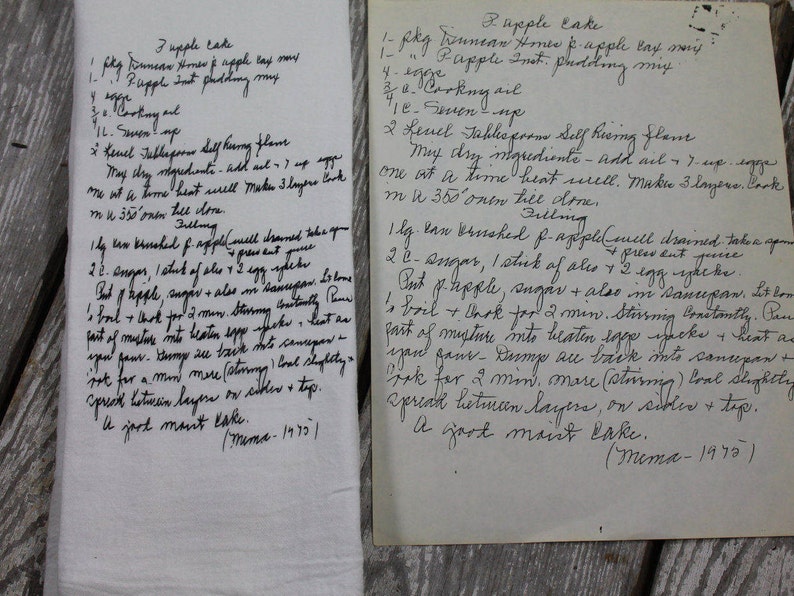 P.apple Cake
1 pkg Duncan Hines p-apple Cax mix
1- " P.apple Inst. pudding mix
4 eggs
3/4 c. Cooking oil
1 c- Seven-up
2 Level Tablespoons Self Rising flour
Mix dry ingredients - add oil + 7 up. eggs
one at a time beat well. Makes 3 layers. Cook
in a 350° oven till done.
Filling
1 lg. can crushed p-apple (well drained. take a spoon
+ press out juice
2 c- sugar, 1 stick of oleo + 2 egg yacks
Put p.apple, sugar + oleo in saucepan. Let come
's boil + cook for 2 min. Stirring constantly. Pour
part of mixture into beaten egg yacks + beat as
you pour- Dump all back into saucepan +
cook for a min more (stirring) Cool slightly +
spread between layers on sides + top.
A good moist Cake.
(Mema - 1975)
P.apple Cake
1- pkg Duncan Hines p-apple Cax mix
1- " P.apple Inst. pudding mix
4- eggs
3/4 c. Cooking oil
1 C- Seven-up
2 Level Tablespoons Self Rising flour
Mix dry ingredients - add oil + 7 up- eggs
one at a time beat well. Makes 3 layers. Cook
in a 350° oven till done.
Filling
1 lg. can crushed p-apple (well drained. take a spoon
+ press out juice
2 c- sugar, 1 stick of oleo + 2 egg yacks.
Put p-apple, sugar + oleo in saucepan. Let come
's boil + cook for 2 min. Stirring constantly. Pour
part of mixture into beaten eggs yacks + beat as
you pour- Dump all back into saucepan +
cook for 2 min. more (stirring) Cool slightly
spread between layers, on sides + top.
A good moist Cake.
(Mema - 1975)